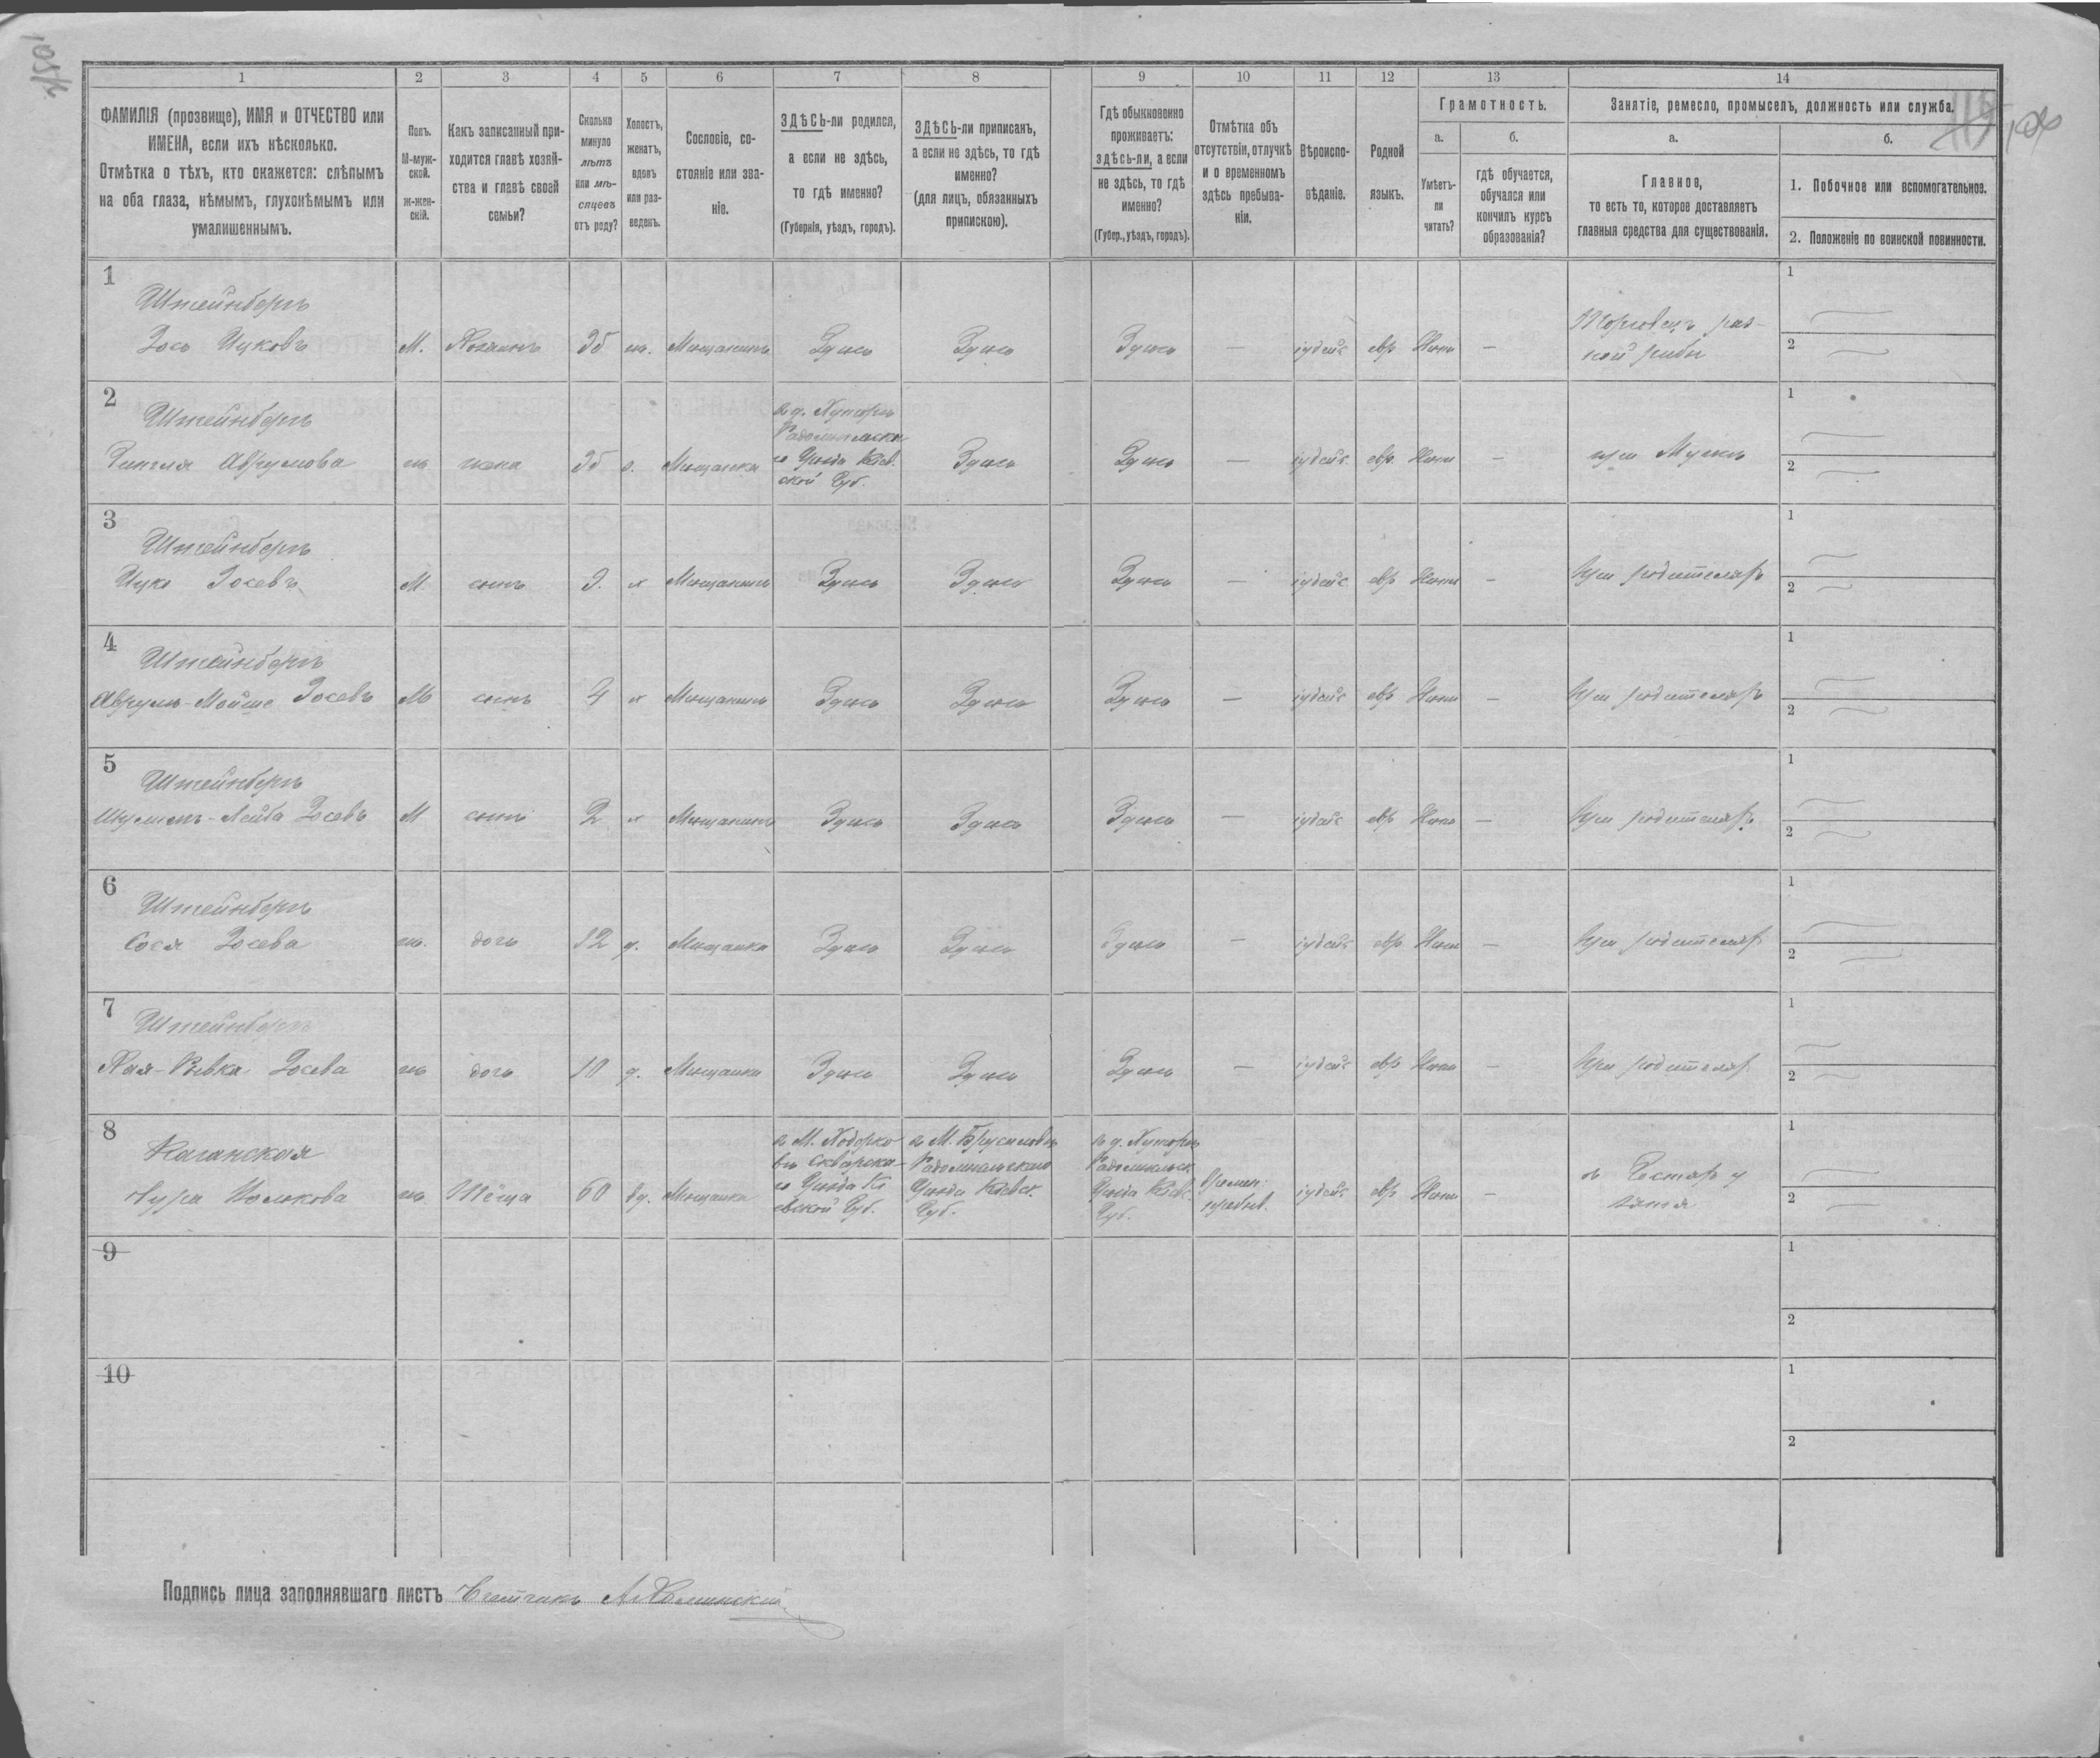 1 2 3 4 5 6 7 8 9 10 11 12 13 14
ФАМИЛІЯ (прозвище), ИМЯ и ОТЧЕСТВО или
ИМЕНА, если ихъ нѣсколько.
Отмѣтка о тѣхъ, кто окажется: слѣпымъ
на оба глаза, нѣмымъ, глухонѣмымъ или
умалишеннымъ.
Полъ.
М-муж-
ской.
ж-жен-
скій.
Какъ записанный при-
ходится главѣ хозяй-
ства и главѣ своей
семьи?
Сколько
минуло
лѣтъ
или мѣ-
сяцевъ
отъ роду?
Холостъ,
женатъ,
вдовъ
или раз-
веденъ.
Сословіе, со-
стояніе или зва-
ніе.
ЗДѢСЬ-ли родился,
а если не здѣсь,
то гдѣ именно?
(Губернія, уѣздъ, городъ).
ЗДѢСЬ-ли приписанъ,
а если не здѣсь, то гдѣ
именно?
(для лицъ, обязанныхъ
припискою).
Гдѣ обыкновенно
проживаетъ:
здѣсь-ли, а если
не здѣсь, то гдѣ
именно?
(Губер., уѣздъ, городъ).
Отмѣтка объ
отсутствіи, отлучкѣ
и о временномъ
здѣсь пребыва-
ніи.
Вѣроиспо-
вѣданіе.
Родной
языкъ.
Грамотность.
а.
Умѣетъ-
ли
читать?
б.
гдѣ обучается,
обучался или
кончилъ курсъ
образованія?
Занятіе, ремесло, промыселъ, должность или служба.
а.
Главное,
то есть то, которое доставляетъ
главныя средства для существованія.
б.
1. Побочное или вспомогательное.
2. Положеніе по воинской повинности.
1
Штейнбергъ
Зось Ицковъ М. Хозяинъ 35 ж. Мѣщанинъ Здѣсь Здѣсь Здѣсь — іудейс евр Нѣтъ —
рыбы
1
2
2
Штейнбергъ
Аврумова ж жена 35 з. Мѣщанка
Радомысльска
го Уѣзда Кіев.
ской Губ.
Здѣсь Здѣсь — іудейс евр. Нѣтъ — при Мужѣ
1
2
3
Штейнбергъ
Ицко Зосевъ М. сынъ 9. х Мѣщанинъ Здѣсь Здѣсь Здѣсь — іудейс евр Нѣтъ — при родителяхъ
1
2
4
Штейнбергъ
Аврумъ-Мойше Зосевъ М сынъ 4 х Мѣщанинъ Здѣсь Здѣсь Здѣсь — іудейс евр Нѣтъ — при родителяхъ
1
2
5
Штейнбергъ
Шулимъ-Лейба Зосевъ М сынъ 2 х Мѣщанинъ Здѣсь Здѣсь Здѣсь — іудейс евр Нѣтъ — при родителяхъ
1
2
6
Штейнбергъ
Сося Зосева ж. дочь 12 д. Мѣщанка Здѣсь Здѣсь Здѣсь — іудейс евр Нѣтъ — при родителях
1
2
7
Штейнбергъ
Хая-Ривка Зосева ж дочь 10 д. Мѣщанка Здѣсь Здѣсь Здѣсь — іудейс евр Нѣтъ — при родителях
1
2
8
Каганская
ж. Тёща 60 вд. Мѣщанка
в М. Ходорко
въ Сквирска-
го Уѣзда Кі
евской Губ.
в М. Брусиловъ
Радомысльскаго
Уѣзда Кіевс.
Губ.
Уѣзда Кіевс.
Губ.
Времен.
пребыв.
іудейс евр Нѣтъ —
зятя
1
2
9
1
2
10
1
2
Подпись лица заполнявшаго листъ Счетчикъ